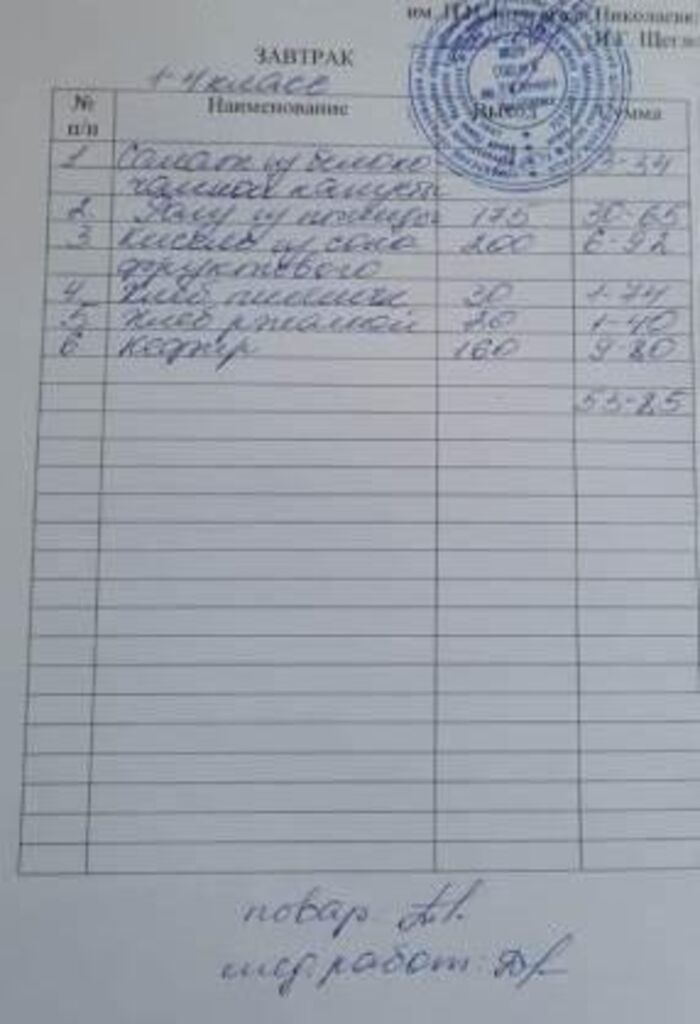 Николаевк
И.Г. Щегл
ЗАВТРАК
1-4 класс
№ п/п Наименование Выход Сумма
1 Салат из белоко 3-34
чанной капусты
2 175 30-65
3 Кисель из сока 200 6-92
фруктового
4 Хлеб пшеничн 30 1-74
5 Хлеб ржаной 20 1-40
6 Кефир 160 9-80
53-85
повар
мед. работ.